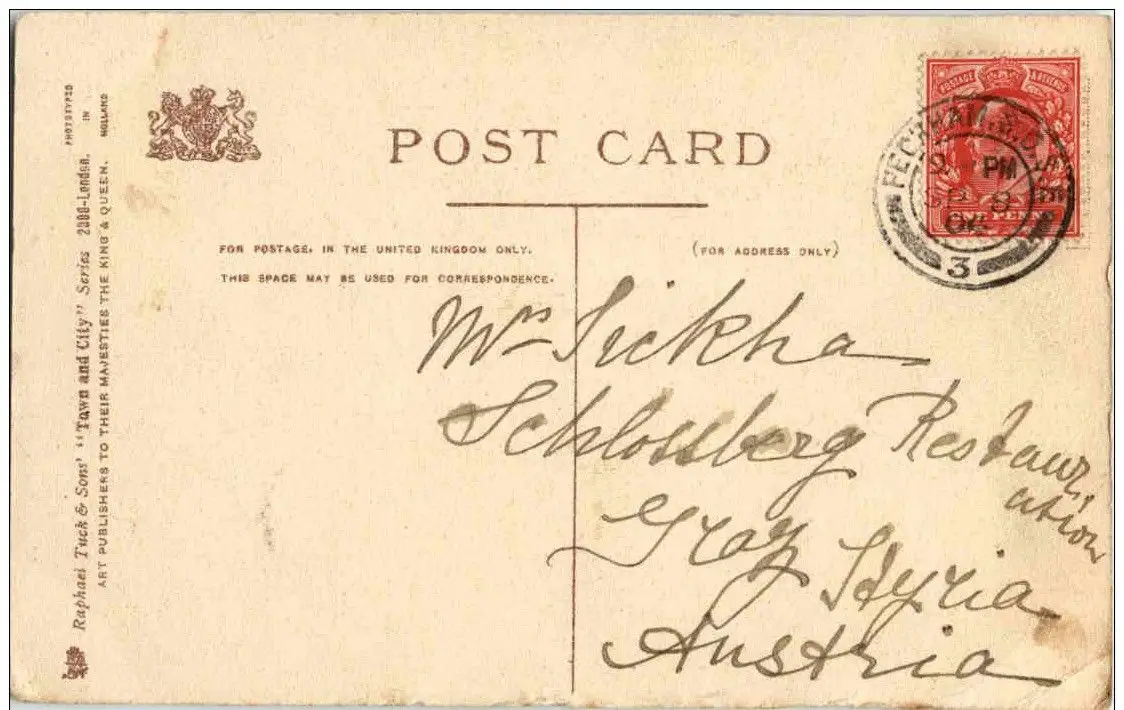 POST CARD
FOR POSTAGE, IN THE UNITED KINGDOM ONLY,
THIS SPACE MAY BE USED FOR CORRESPONDENCE.
(FOR ADDRESS ONLY)
POSTAGE & REVENUE
ONE PENNY
PECKHAM. S.O.
PM
SP 8
3
Mrs Sickha
Schlossberg Restaur,
ation
Graz
Styria
Austria
PHOTOTYPED
IN
HOLLAND
Raphael Tuck & Sons' "Town and City" Series 2000-London.
ART PUBLISHERS TO THEIR MAJESTIES THE KING & QUEEN.